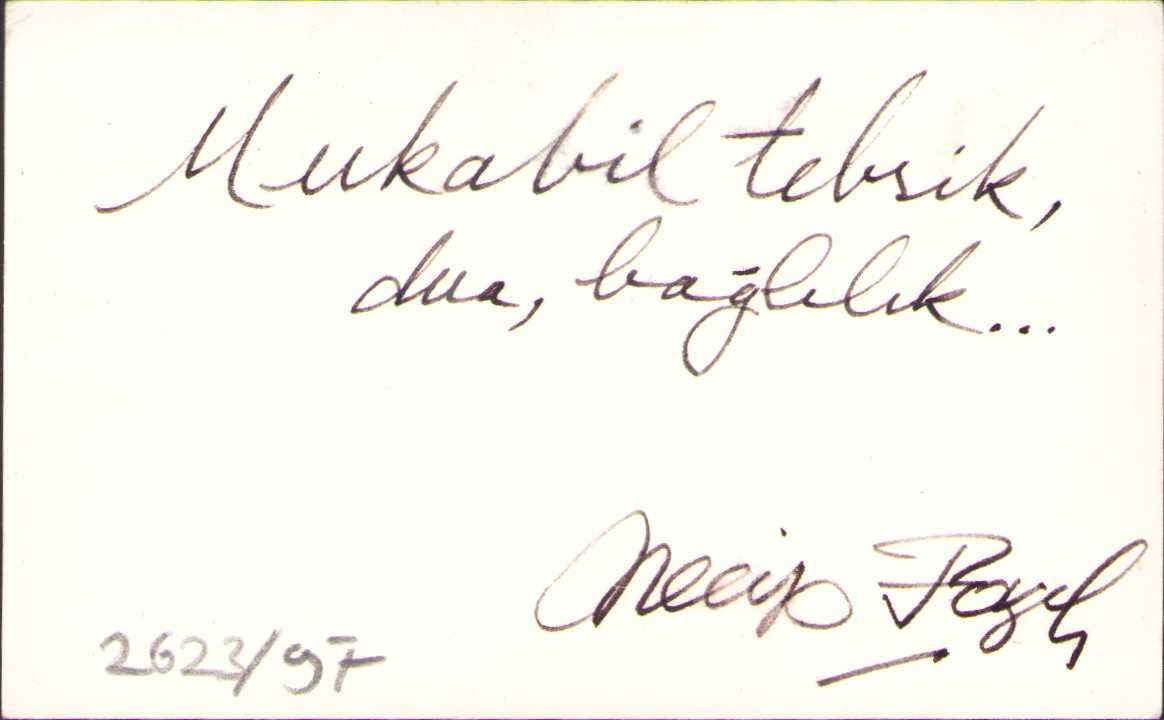 Mukabil tebrik,
dua, bağlılık...
Necip Fazıl
2623/97